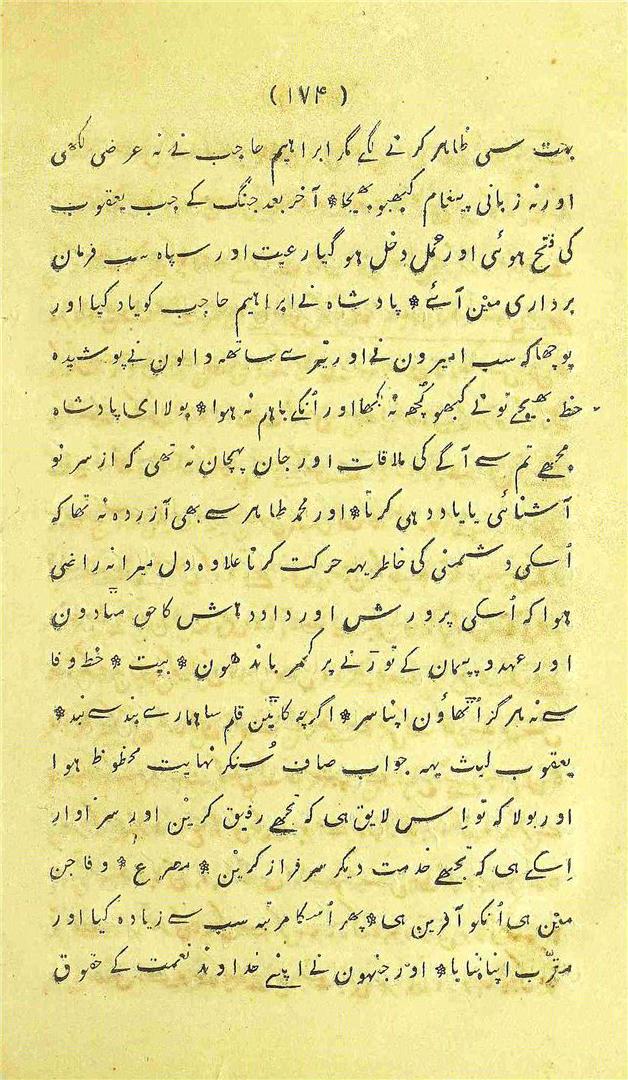 ( ۱۷۴ )
بہت سی ظاہر کرنے لگے مگر ابراہیم حاجب نے نہ عرضی لکھی
اور نہ زبانی پیغام کبھو بھیجا * آخر بعد جنگ کے جب یعقوب
کی فتح ہوئی اور عمل دخل ہو گیا رعیت اور سپاہ سب فرمان
برداری مین آئے * پادشاہ نے ابراہیم حاجب کو یاد کیا اور
پوچھا کہ سب امیرون نے اور تیرے ساتھہ والون نے پوشیدہ
خط بھیجے تونے کبھو کُچھ نہ لکھا اور اُنکے باہم نہ ہوا * بولا ای پادشاہ
مُجھے تم سے آگے کی ملاقات اور جان پہچان نہ تھی کہ از سر نو
آشنائی یا یاد دہی کرتا * اور محمد طاہر سے بھی آزردہ نہ تھا کہ
اُسکی دشمنی کی خاطر یہہ حرکت کرتا علاوہ دل میرا نہ راضی
ہوا کہ اُسکی پرورش اور داد دہش کا حق مٹادون
اور عہد و پیمان کے توڑنے پر کمر باندھون * بیت * خط وفا
سے نہ ہرگز اُٹھاؤن اپنا سر * اگرچہ کاٹین قلم سا ہمارے بند سے بند *
یعقوب لیث یہہ جواب صاف سُنکر نہایت محظوظ ہوا
اور بولا کہ تو اِس لایق ہی کہ تُجھے رفیق کرین اور سزاوار
اِسکے ہی کہ تُجھے خدمت دیکر سرفراز کرین * مصرع * وفا جن
مین ہی اُنکو آفرین ہی * پھر اُسکا مرتبہ سب سے زیادہ کیا اور
مقرّب اپنا بنایا * اور جنہون نے اپنے خداوند نعمت کے حقوق